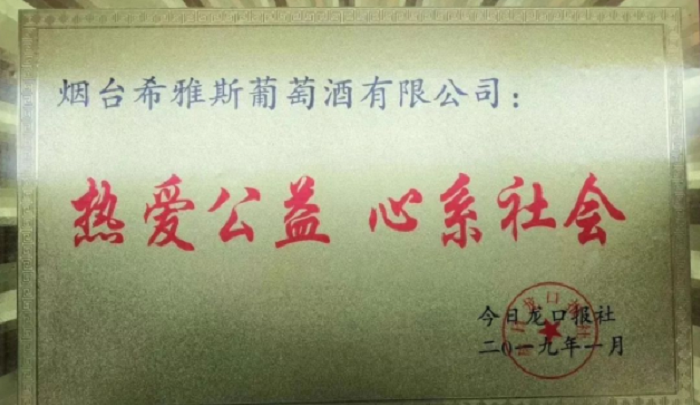 烟台希雅斯葡萄酒有限公司：
热爱公益 心系社会
今日龙口报社
二〇一九年一月